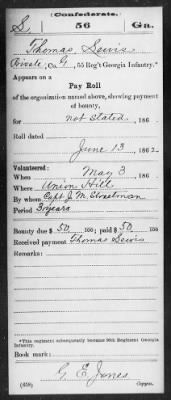 (Confederate.)
S 56 Ga.
Thomas Lewis
Private, Co. G, 55 Reg't Georgia Infantry.*
Appears on a
Pay Roll
of the organization named above, showing payment
of bounty,
for not stated, 186 .
Roll dated
June 13, 1862.
Volunteered:
When May 3, 186 .
Where Union Hill
By whom Capt J. M.
Period 3 years
Bounty due $50 100; paid $50 100
Received payment Thomas Lewis
Remarks:
*This regiment subsequently became 56th Regiment Georgia
Infantry.
Book mark:
G E Jones
(659) Copyist.